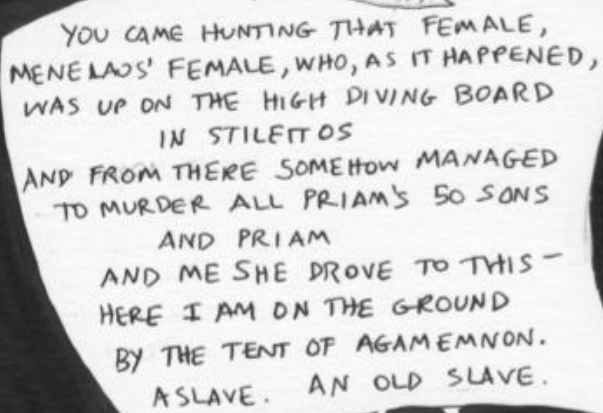 YOU CAME HUNTING THAT FEMALE,
MENELAOS' FEMALE, WHO, AS IT HAPPENED,
WAS UP ON THE HIGH DIVING BOARD
IN STILETTOS
AND FROM THERE SOMEHOW MANAGED
TO MURDER ALL PRIAM'S 50 SONS
AND PRIAM
AND ME SHE DROVE TO THIS –
HERE I AM ON THE GROUND
BY THE TENT OF AGAMEMNON.
A SLAVE. AN OLD SLAVE.